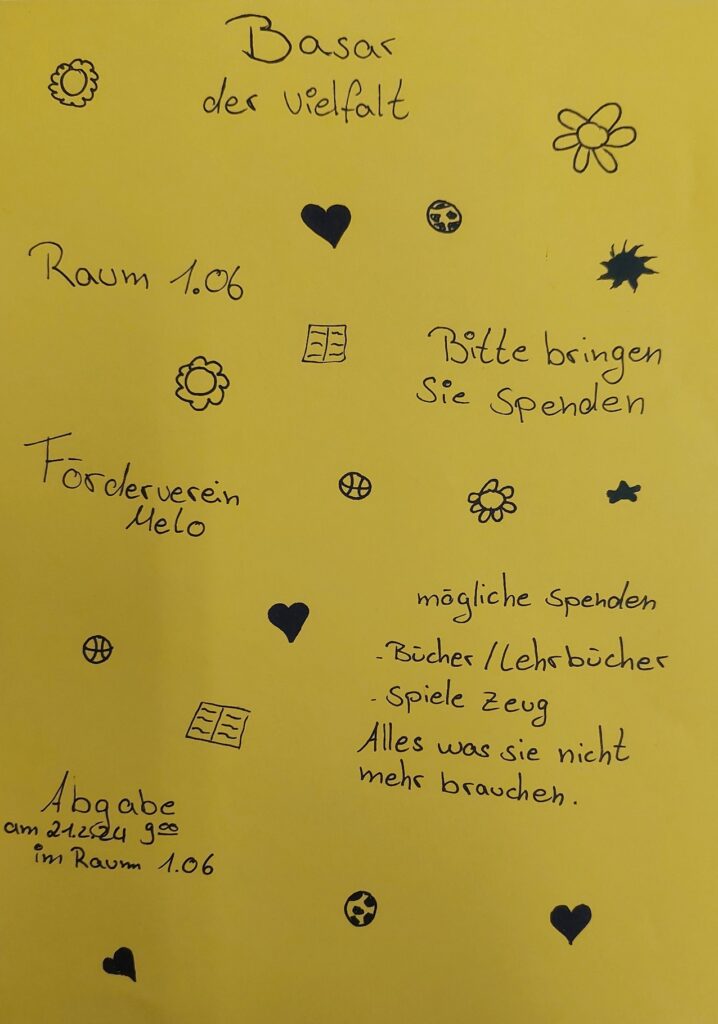 Basar
der vielfalt
Raum 1.06
Bitte bringen
Sie Spenden
Förderverein
Melo
mögliche spenden
- Bücher/Lehrbücher
- Spiele Zeug
Alles was sie nicht
mehr brauchen.
Abgabe
am 21.2.24 9⁰⁰
im Raum 1.06